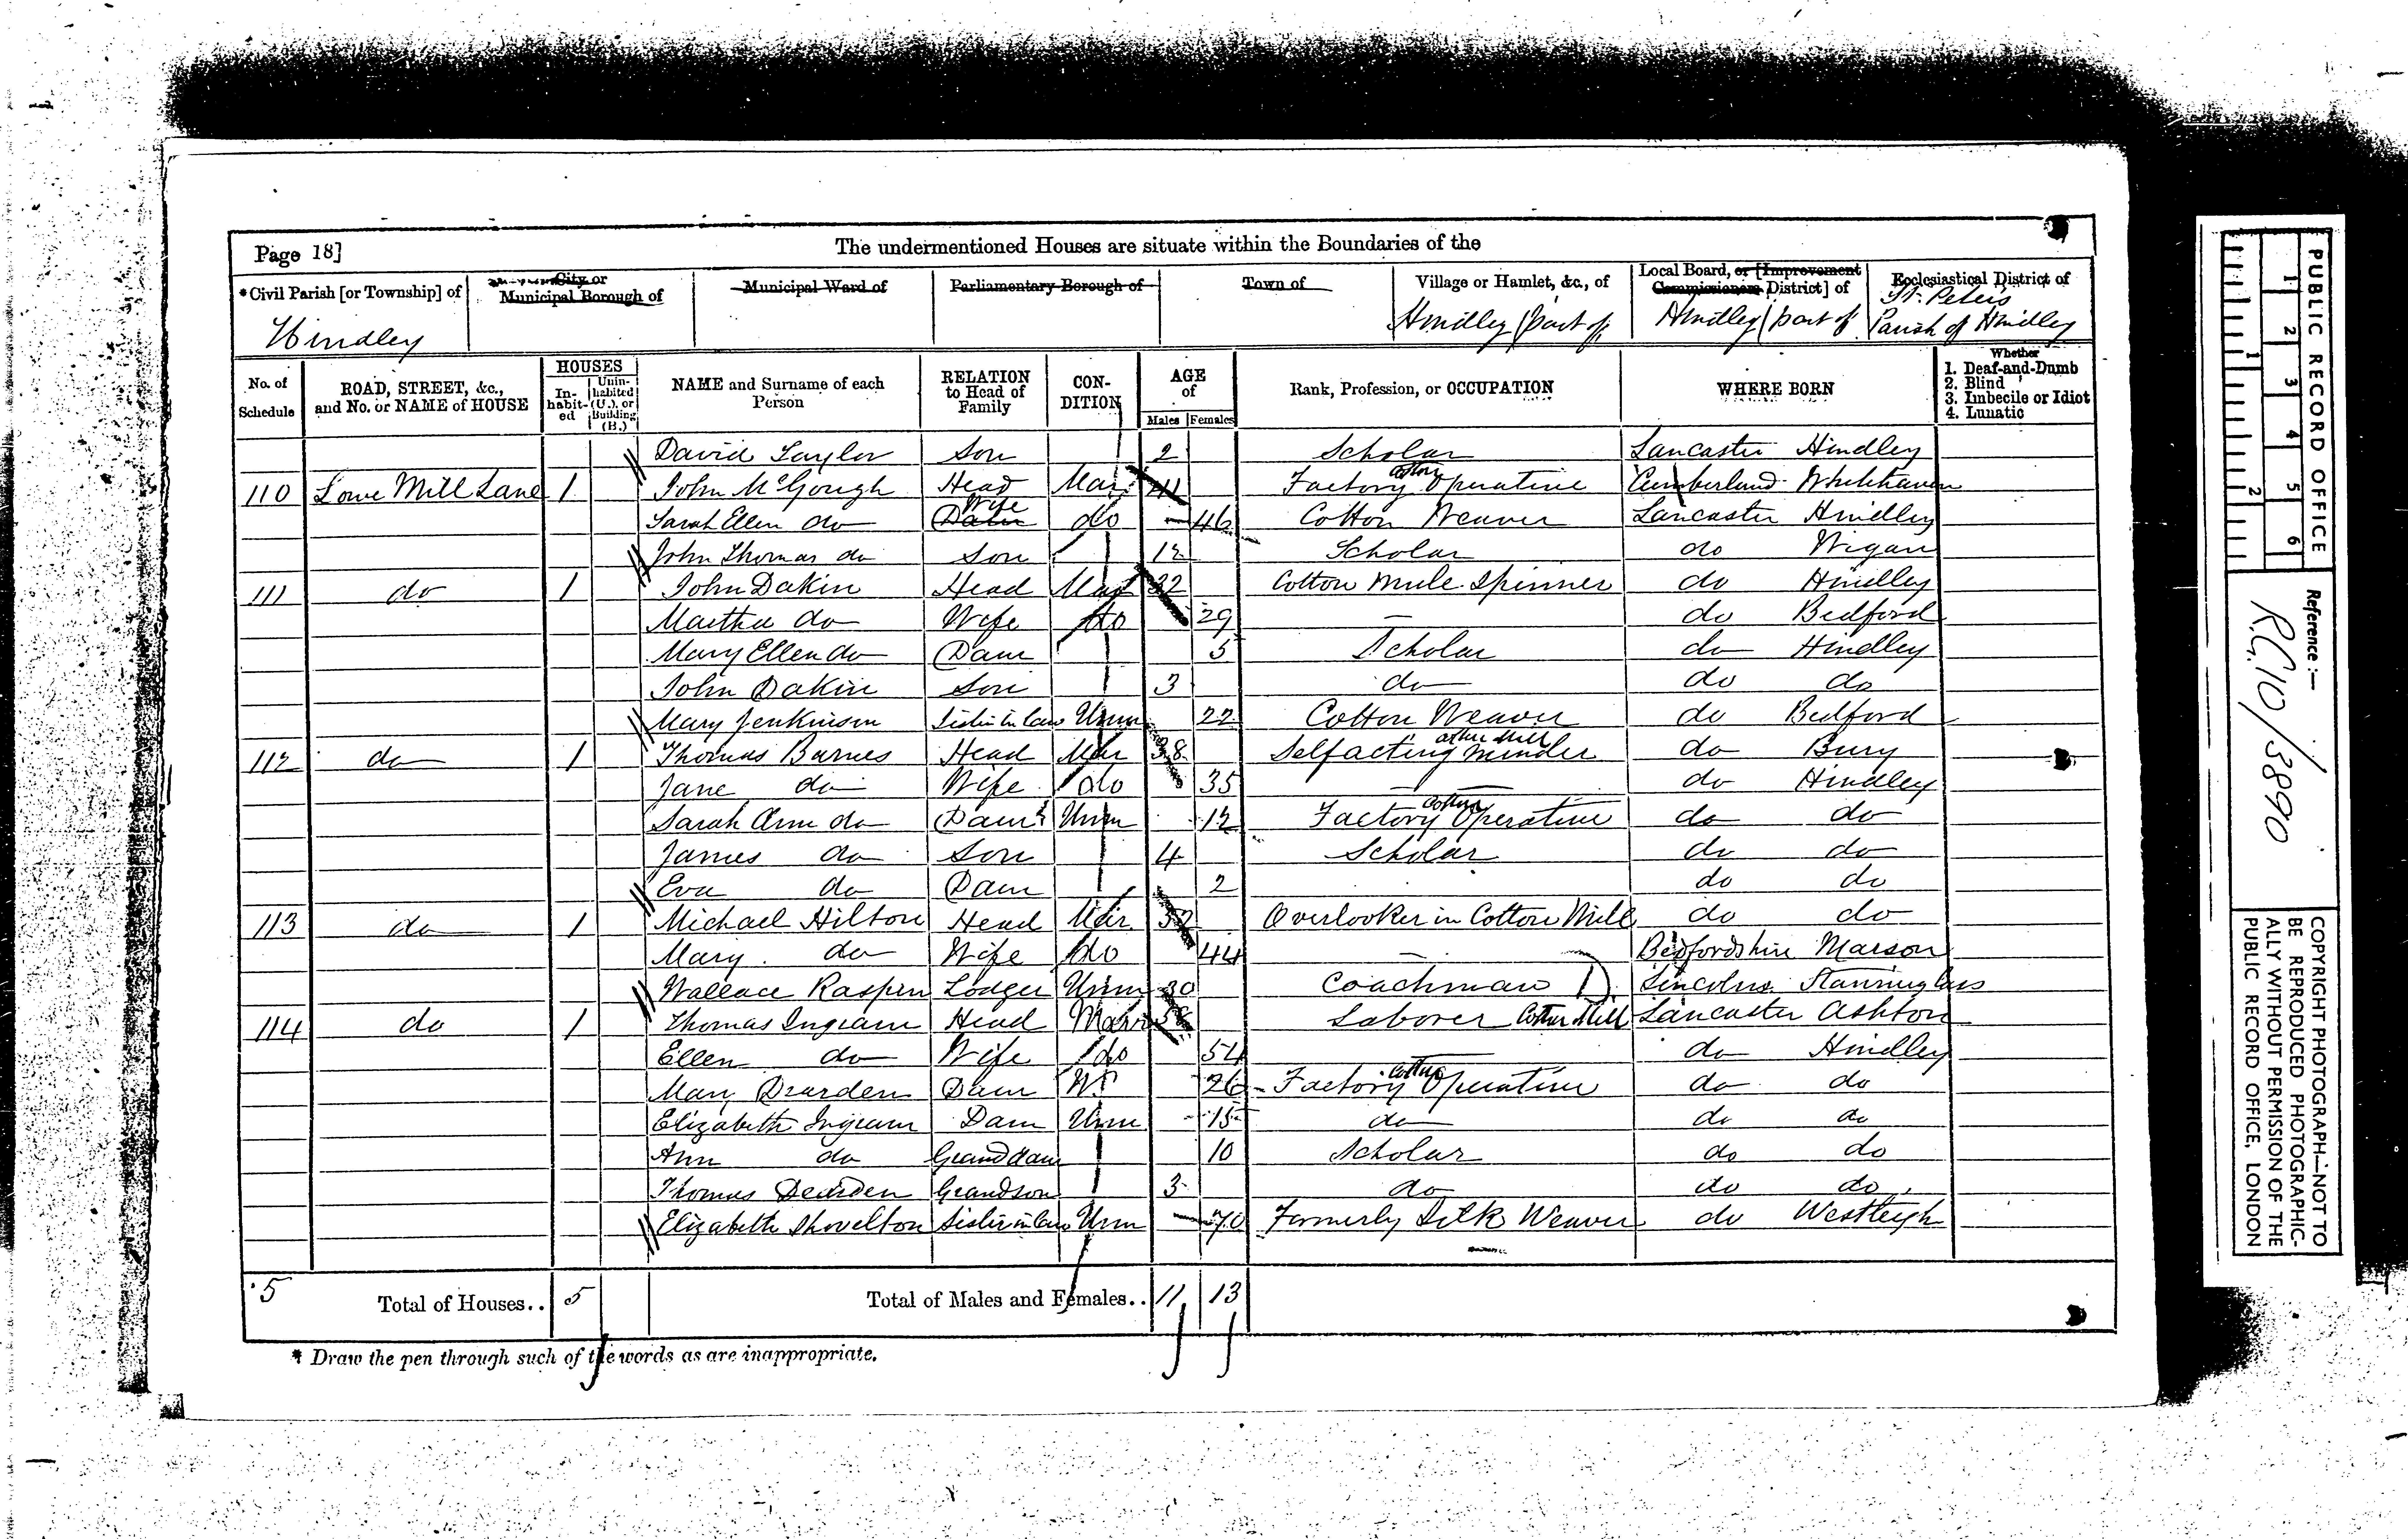 Page 18]
The undermentioned Houses are situate within the Boundaries of the
*Civil Parish [or Township] of
City or Municipal Borough of
Municipal Ward of
Parliamentary Borough of
Town of
Village or Hamlet, &c., of
Local Board, or [Improvement Commissioners District] of
Ecclesiastical District of
Hindley
Hindley (part of)
Hindley (part of)
St. Peters Parish of Hindley
No. of Schedule
ROAD, STREET, &c., and No. or NAME of HOUSE
HOUSES
In-habit-ed
Unin-habited (U.), or Building (B.)
NAME and Surname of each Person
RELATION to Head of Family
CON-DITION
AGE of
Males Females
Rank, Profession, or OCCUPATION
WHERE BORN
Whether
1. Deaf-and-Dumb
2. Blind
3. Imbecile or Idiot
4. Lunatic
David Taylor Son 2 Scholar Lancaster Hindley
110 Lowe Mill Lane 1 John McGough Head Mar 41 Factory Cotton Operative Cumberland Whitehaven
Sarah Ellen do Wife do 46 Cotton Weaver Lancaster Hindley
John Thomas do Son 12 Scholar do Wigan
111 do 1 John Dakin Head Mar 32 Cotton Mule Spinner do Hindley
Martha do Wife do 29 — do Bedford
Mary Ellen do Daur 5 Scholar do Hindley
John Dakin Son 3 do do do
Mary Jenkinson Sister in law Unm 22 Cotton Weaver do Bedford
112 do 1 Thomas Barnes Head Mar 38 Selfacting Minder Cotton Mill do Bury
Jane do Wife do 35 — do Hindley
Sarah Ann do Daur Unm 12 Factory Cotton Operative do do
James do Son 4 Scholar do do
Eva do Daur 2 do do
113 do 1 Michael Hilton Head Mar Overlooker in Cotton Mill do do
Mary do Wife do 44 — Bedfordshire Marson
Wallace Raspin Lodger Unm 30 Coachman D Lincolns
114 do 1 Thomas Ingram Head Mar Laborer Cotton Mill Lancaster Ashton
Ellen do Wife do 54 — do Hindley
Mary Dearden Daur W 26 Factory Cotton Operative do do
Elizabeth Ingram Daur Unm 15 do do do
Ann do Grand daur 10 Scholar do do
Thomas Dearden Grandson 3 do do do
Elizabeth Shovelton Sister in law Unm 70 Formerly Silk Weaver do Westleigh
5 Total of Houses.. 5 Total of Males and Females.. 11 13
* Draw the pen through such of the words as are inappropriate.
PUBLIC RECORD OFFICE
1 2 3 4 5 6
1 2
Reference :—
R.G. 10/3890
COPYRIGHT PHOTOGRAPH—NOT TO
BE REPRODUCED PHOTOGRAPHIC-
ALLY WITHOUT PERMISSION OF THE
PUBLIC RECORD OFFICE, LONDON